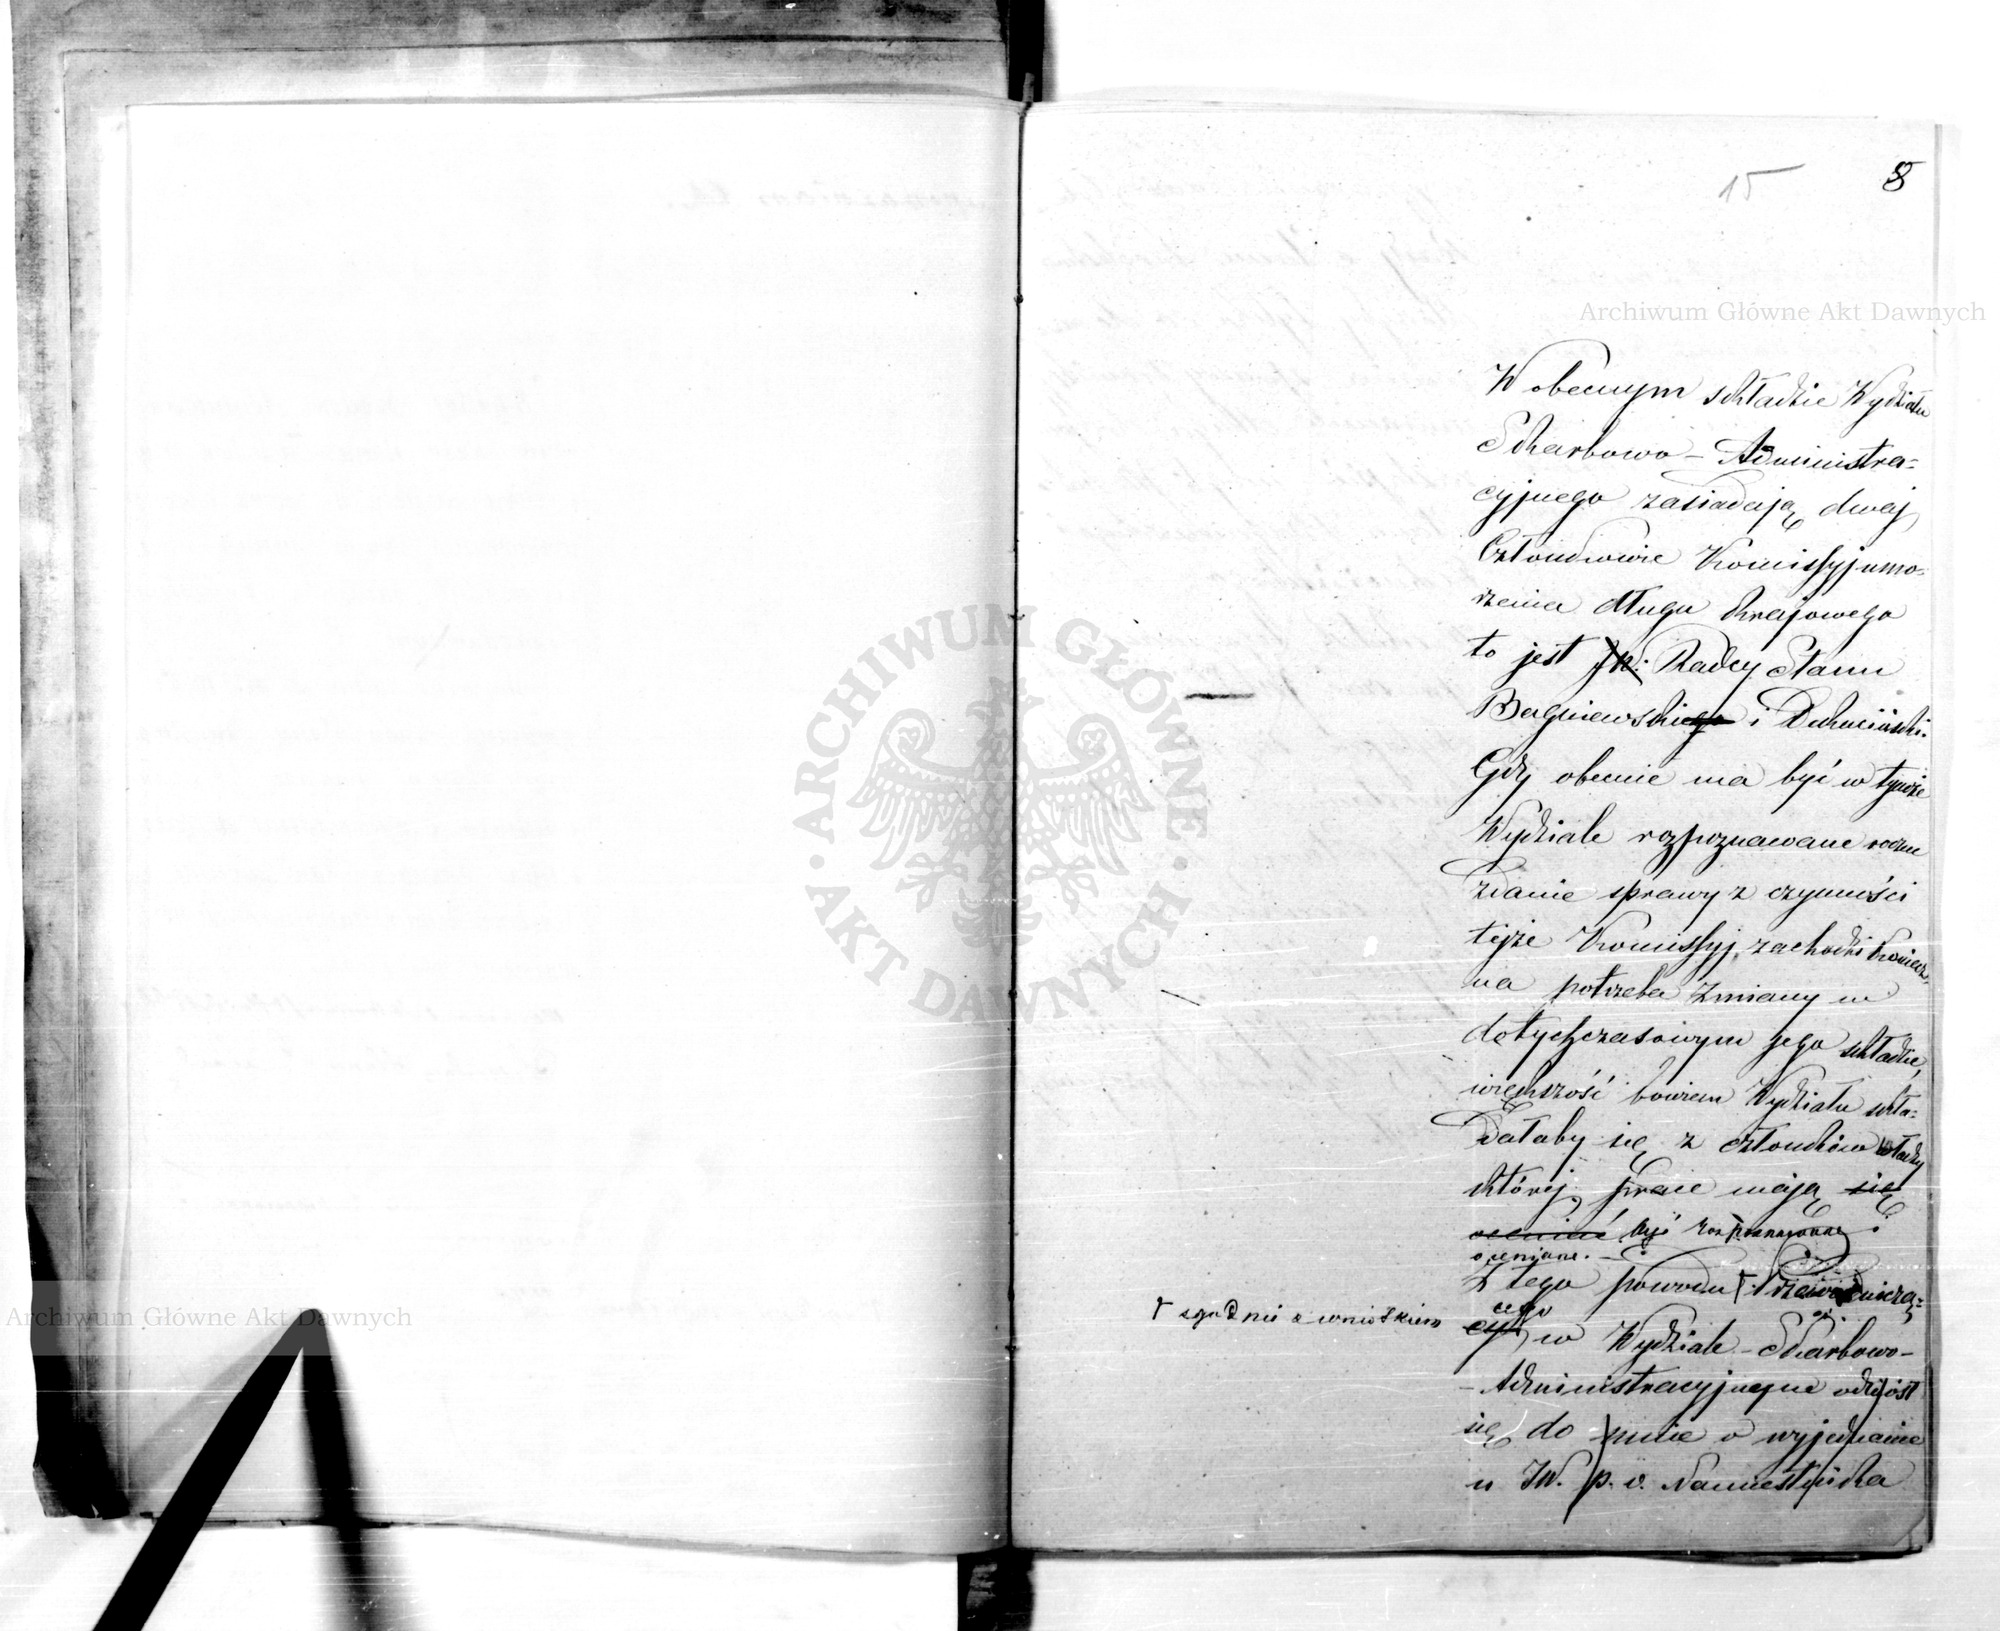 15
8
W obecnym składzie Wydziału
Skarbowo – Administra=
cyjnego zasiadają dwaj
Członkowie Kommissyi umo=
rzenia długu krajowego
to jest JW. Radcy Stanu
Bagniewskiego i
Gdy obecnie ma być w tymże
Wydziale rozpoznawane roczne
zdanie sprawy z czynności
tejże Kommissyj, zachodzi koniecz=
na potrzeba zmiany w
dotychczasowym jego składzie,
większość bowiem Wydziału skła=
dałaby się z członków władzy
której prace mają się
oceniać być rozpoznawane i
oceniane. –
Z tego powodu
cego
w Wydziale – Skarbowo –
– Administracyjnym odniósł
się do mnie o wyjednanie
u JW. p. o. Namiestnika
zgodnie z wnioskiem
Archiwum Główne Akt Dawnych
Archiwum Główne Akt Dawnych
ARCHIWUM GŁÓWNE · AKT DAWNYCH ·